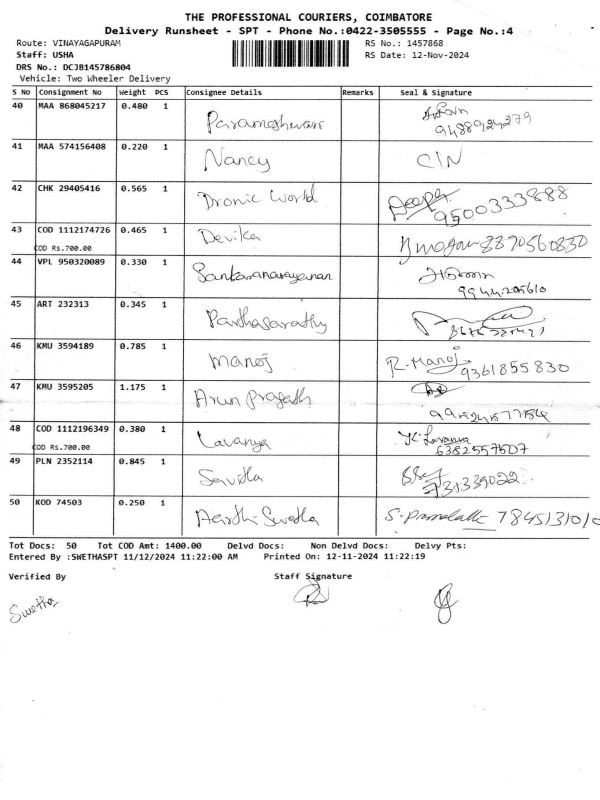 THE PROFESSIONAL COURIERS, COIMBATORE
Delivery Runsheet - SPT - Phone No.:0422-3505555 - Page No.:4
Route: VINAYAGAPURAM RS No.: 1457868
Staff: USHA RS Date: 12-Nov-2024
DRS No.: DCJB145786804
Vehicle: Two Wheeler Delivery
S No Consignment No Weight PCS Consignee Details Remarks Seal & Signature
40 MAA 868045217 0.480 1 Parameshwari
9488924279
41 MAA 574156408 0.220 1 Nancy C/N
42 CHK 29405416 0.565 1 Dronic World Deepa
9500333888
43 COD 1112174726 0.465 1 Devika 8870560830
COD Rs.700.00
44 VPL 950320089 0.330 1 Sankaranarayanan
9944205610
45 ART 232313 0.345 1 Parthasarathy
46 KMU 3594189 0.785 1 Manoj R. Manoj
9361855830
47 KMU 3595205 1.175 1 Arun Pragash
48 COD 1112196349 0.380 1 Lavanya K. Lavanya
COD Rs.700.00 6382557507
49 PLN 2352114 0.845 1 Savitha
50 KOD 74503 0.250 1 Aarthi Swetha
Tot Docs: 50 Tot COD Amt: 1400.00 Delvd Docs: Non Delvd Docs: Delvy Pts:
Entered By :SWETHASPT 11/12/2024 11:22:00 AM Printed On: 12-11-2024 11:22:19
Verified By Staff Signature
Swetha